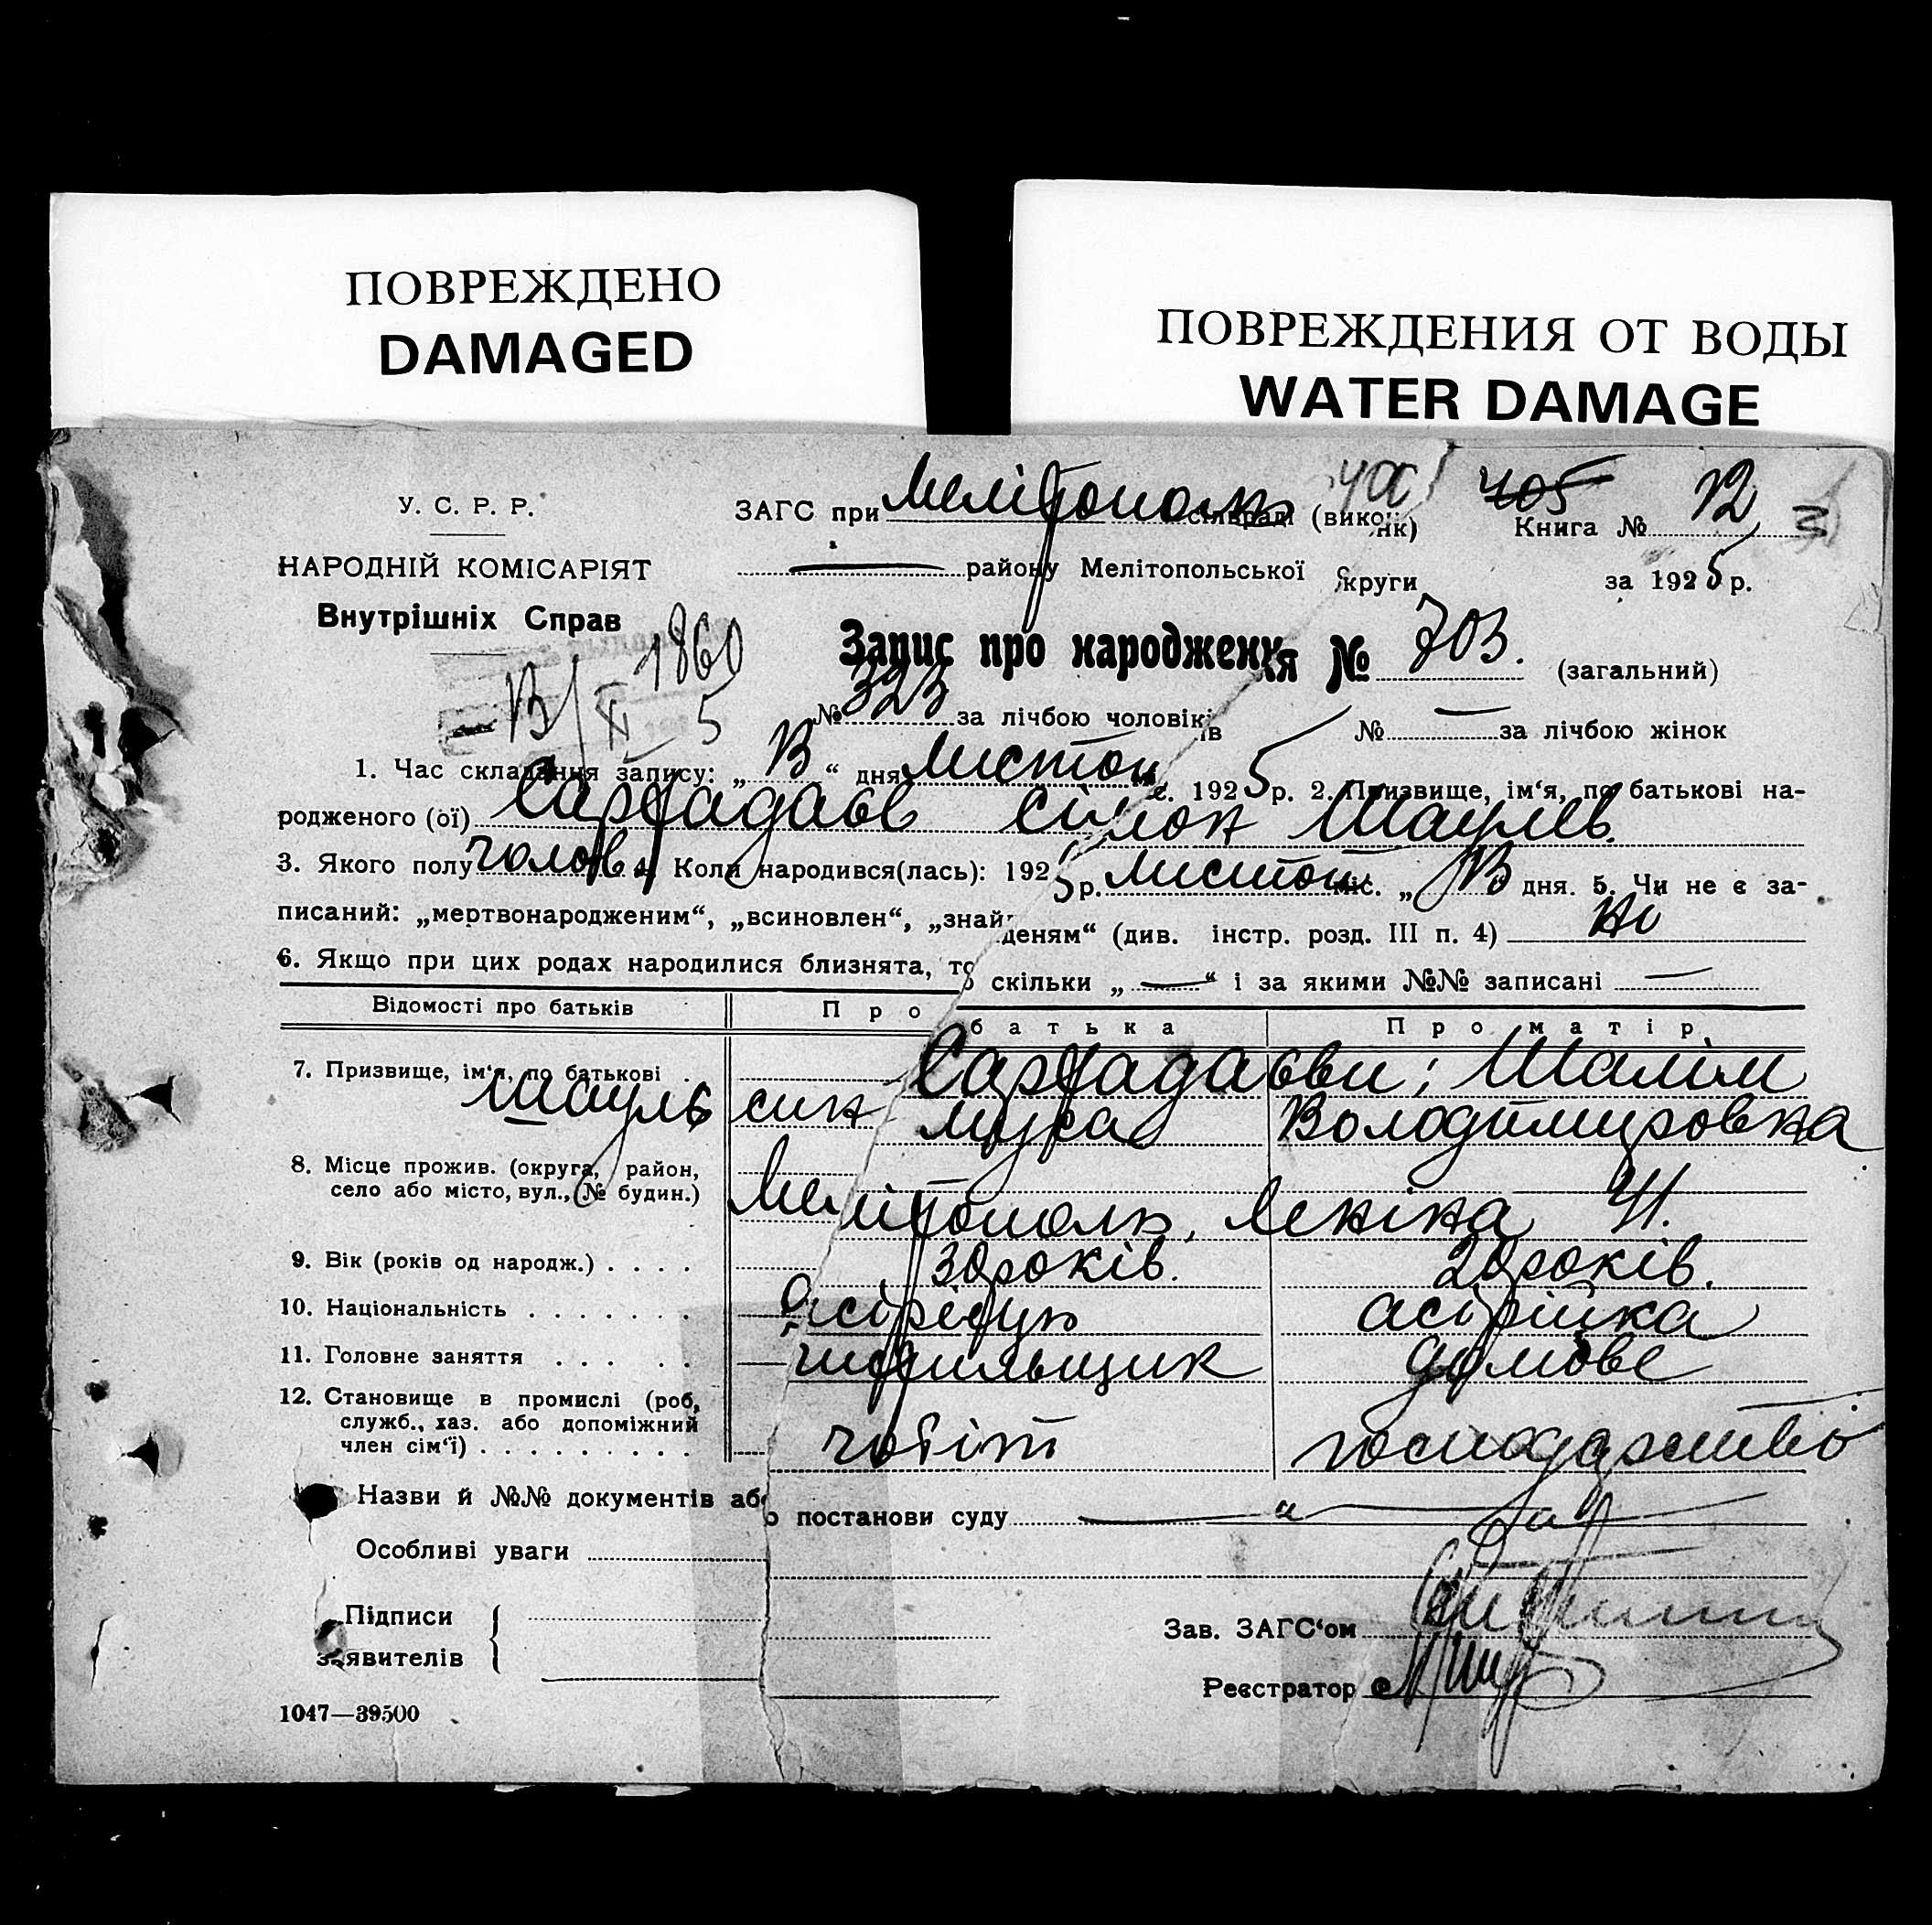 ПОВРЕЖДЕНО
DAMAGED
ПОВРЕЖДЕНИЯ ОТ ВОДЫ
WATER DAMAGE
У. С. Р. Р.
НАРОДНІЙ КОМІСАРІЯТ
Внутрішніх Справ
1860
ЗАГС при Мелітополь сільраді (виконк) 405 Книга № 12
району Мелітопольської округи за 1925 р.
Запис про народження № 703. (загальний)
№ 323 за лічбою чоловіків № — за лічбою жінок
1. Час складання запису: „ 13 “ дня листоп с. 1925 р. 2. Призвище, ім‘я, по батькові на-
родженого (ої) Сілон Шаулів.
3. Якого полу чолов. 4. Коли народився(лась): 1925 р. листоп міс. „ 13 “ дня. 5. Чи не є за-
писаний: „мертвонародженим“, „всиновлен“, „знайденям“ (див. інстр. розд. III п. 4) ні
6. Якщо при цих родах народилися близнята, то скільки „ — “ і за якими №№ записані —
Відомості про батьків Про батька Про матір
7. Призвище, ім‘я, по батькові Шалім
Шауль син Мура Володимировна
8. Місце прожив. (округа, район,
село або місто, вул., № будин.) Мелітополь, Леніна 41.
9. Вік (років од народж.) . . . . 30 років. 20 років.
10. Національність . . . . . . . асірієць асірійка
11. Головне заняття . . . . . чистильщик домове
12. Становище в промислі (роб,
служб., хаз. або допоміжний
член сім‘ї) . . . . . . . . . чобіт господарство
Назви й №№ документів або постанови суду
Особливі уваги
Підписи
заявителів
Зав. ЗАГС‘ом
Реєстратор
1047—39500